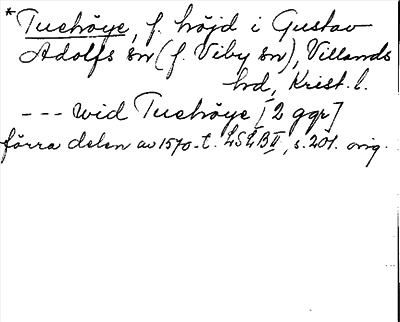 *Tuehöye, f. höjd i Gustav
Adolfs sn (f. Viby sn), Villands
hd, Krist. l.
--- wid Tuehöye [2 ggr]
förra delen av 1570-t. LSLB II, s. 201. orig.